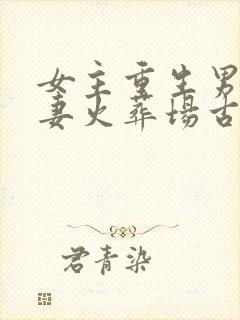 女主重生男
妻火葬场古
君青染